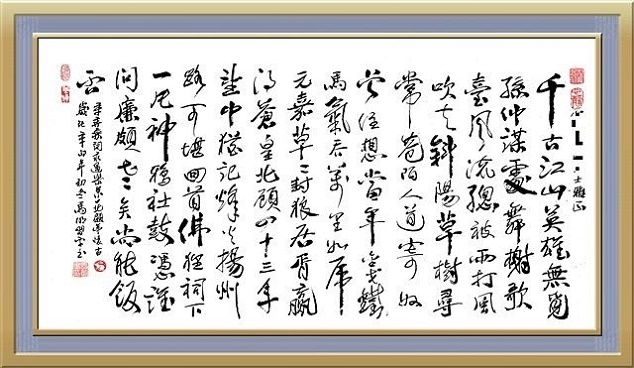 千古江山英雄無覓
孫仲謀處舞榭歌
臺風流總被雨打風
吹去斜陽草樹尋
常巷陌人道寄奴
曾住想當年金戈鐵
馬氣吞萬里如虎
元嘉草草封狼居胥贏
得蒼皇北顧四十三年
望中猶記烽火揚州
路可堪回首佛狸祠下
一片神鴉社鼓憑誰
問廉頗老矣尚能飯
否
辛弃疾詞永遇樂京口北顧亭懷古
歲次辛卯年初冬馬
士雅正